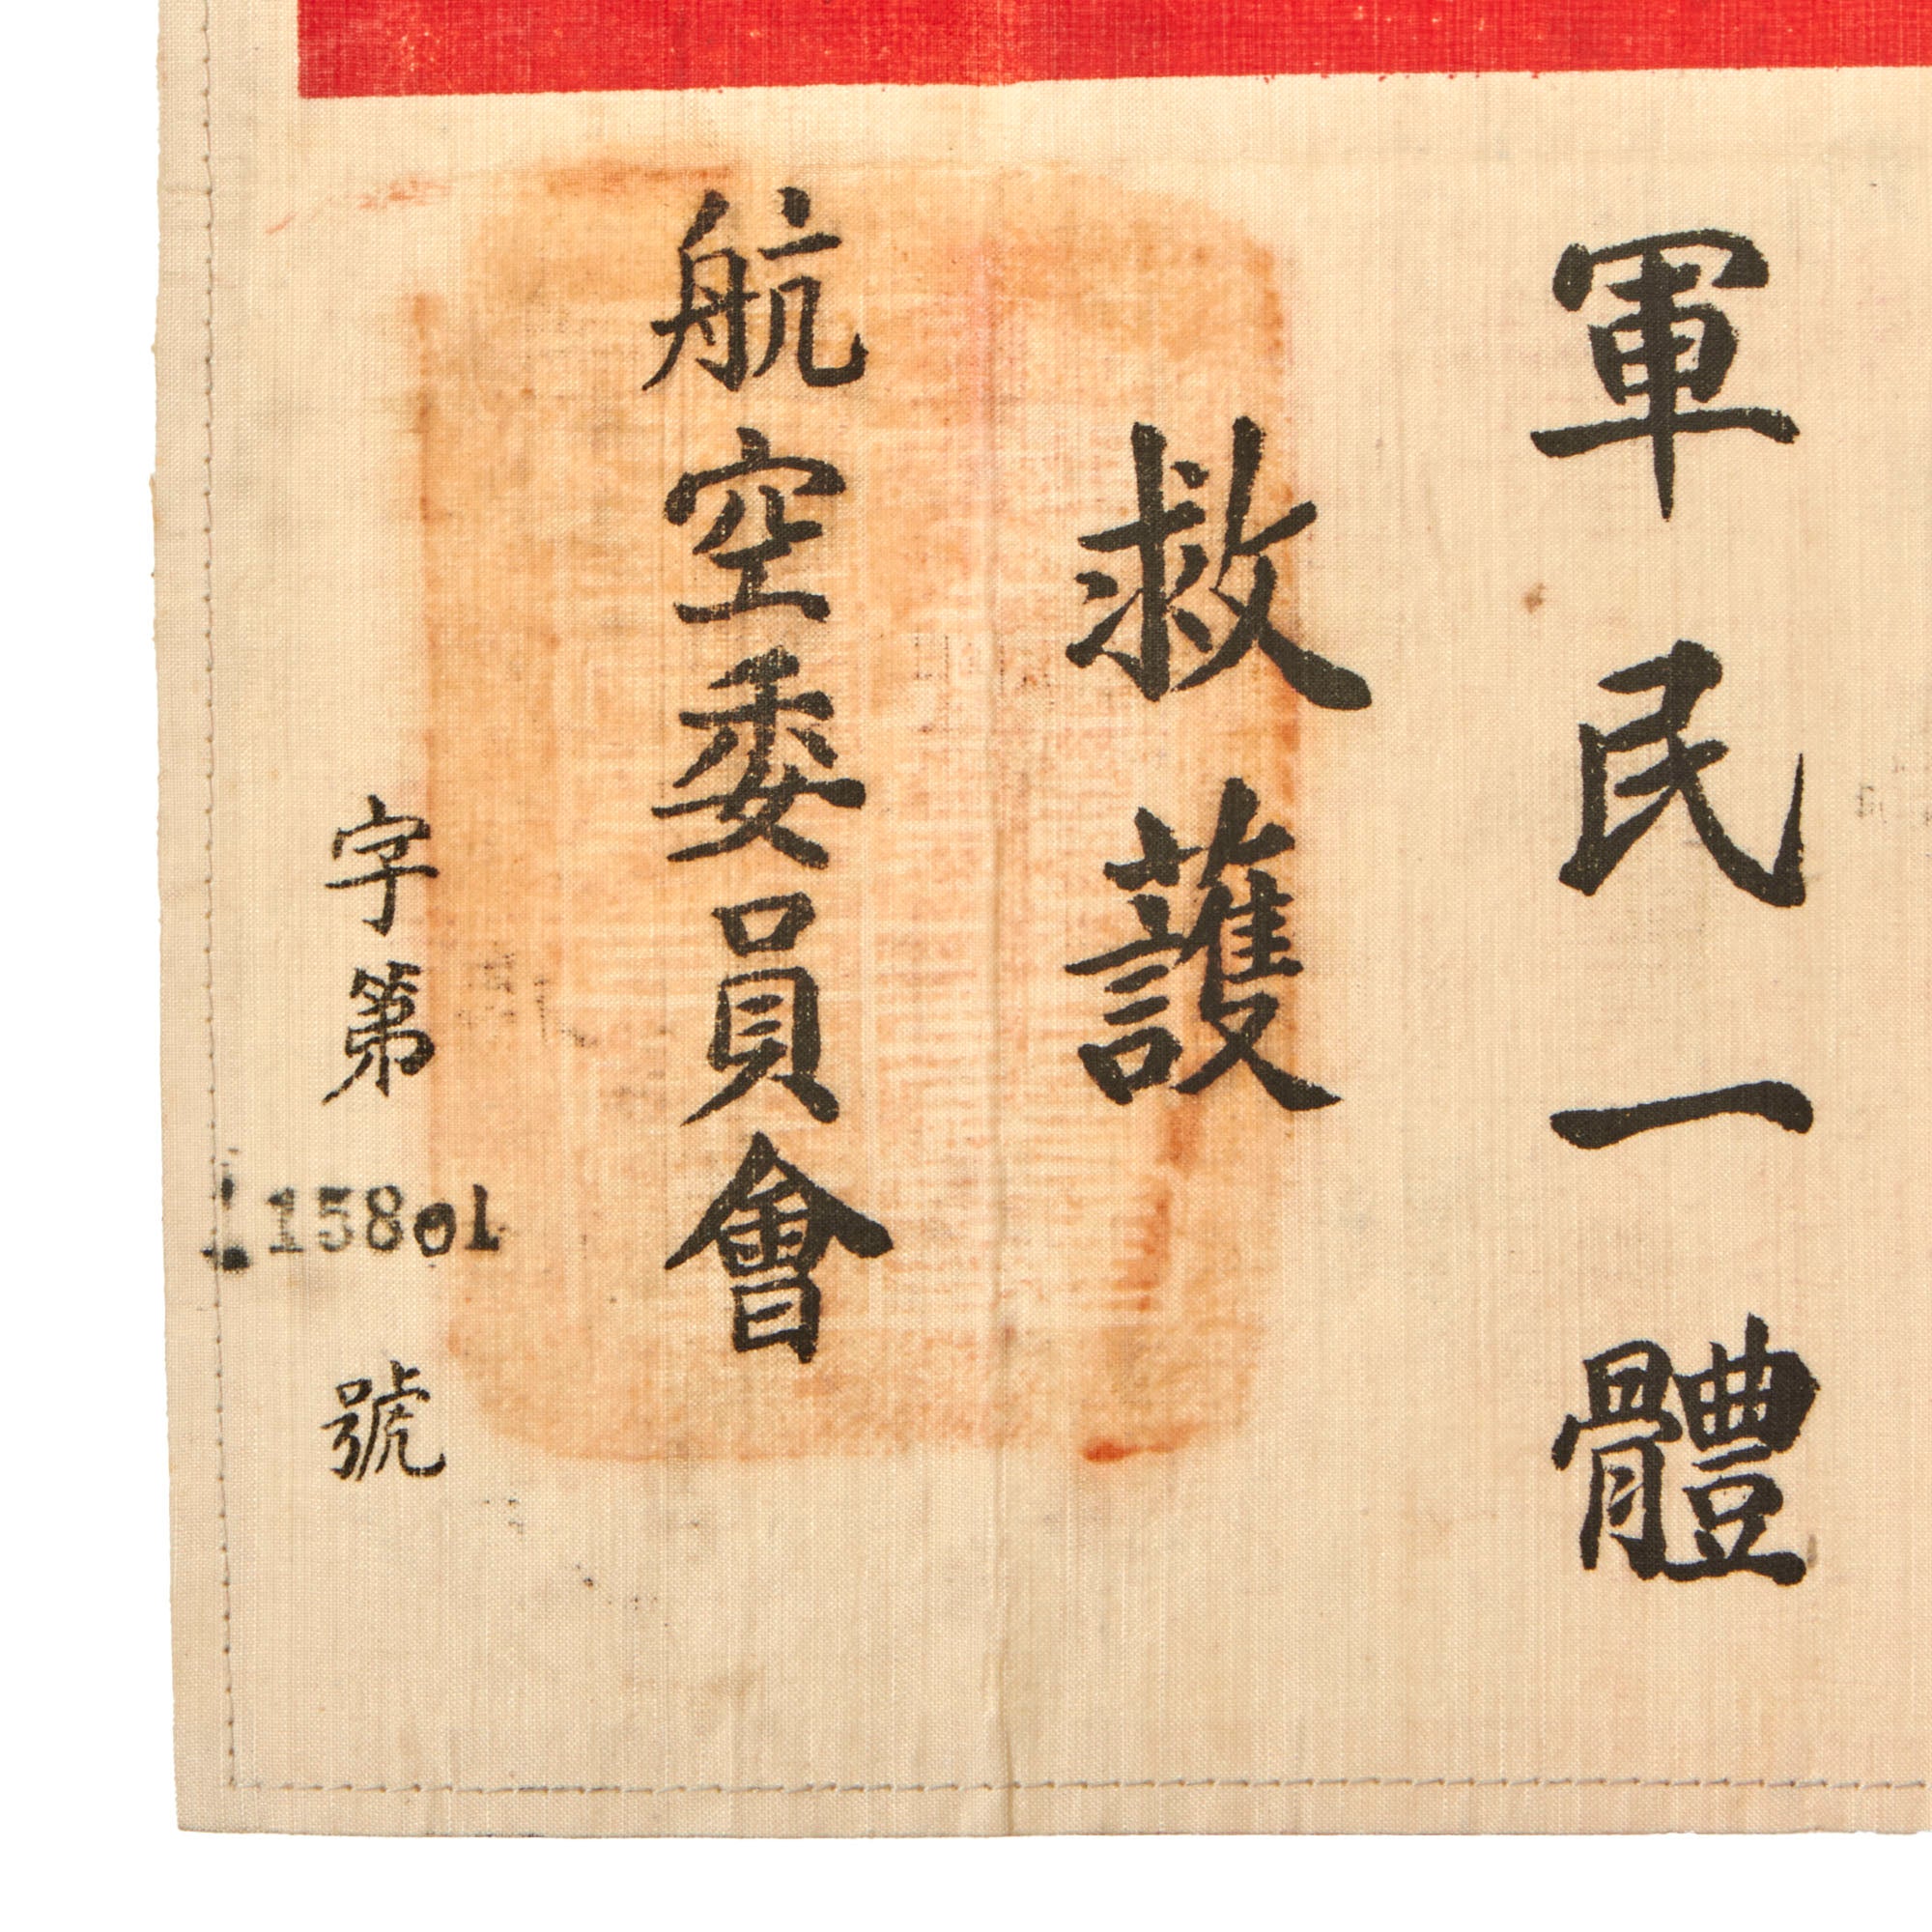 軍民一體
救護
航空委員會
字第115801號